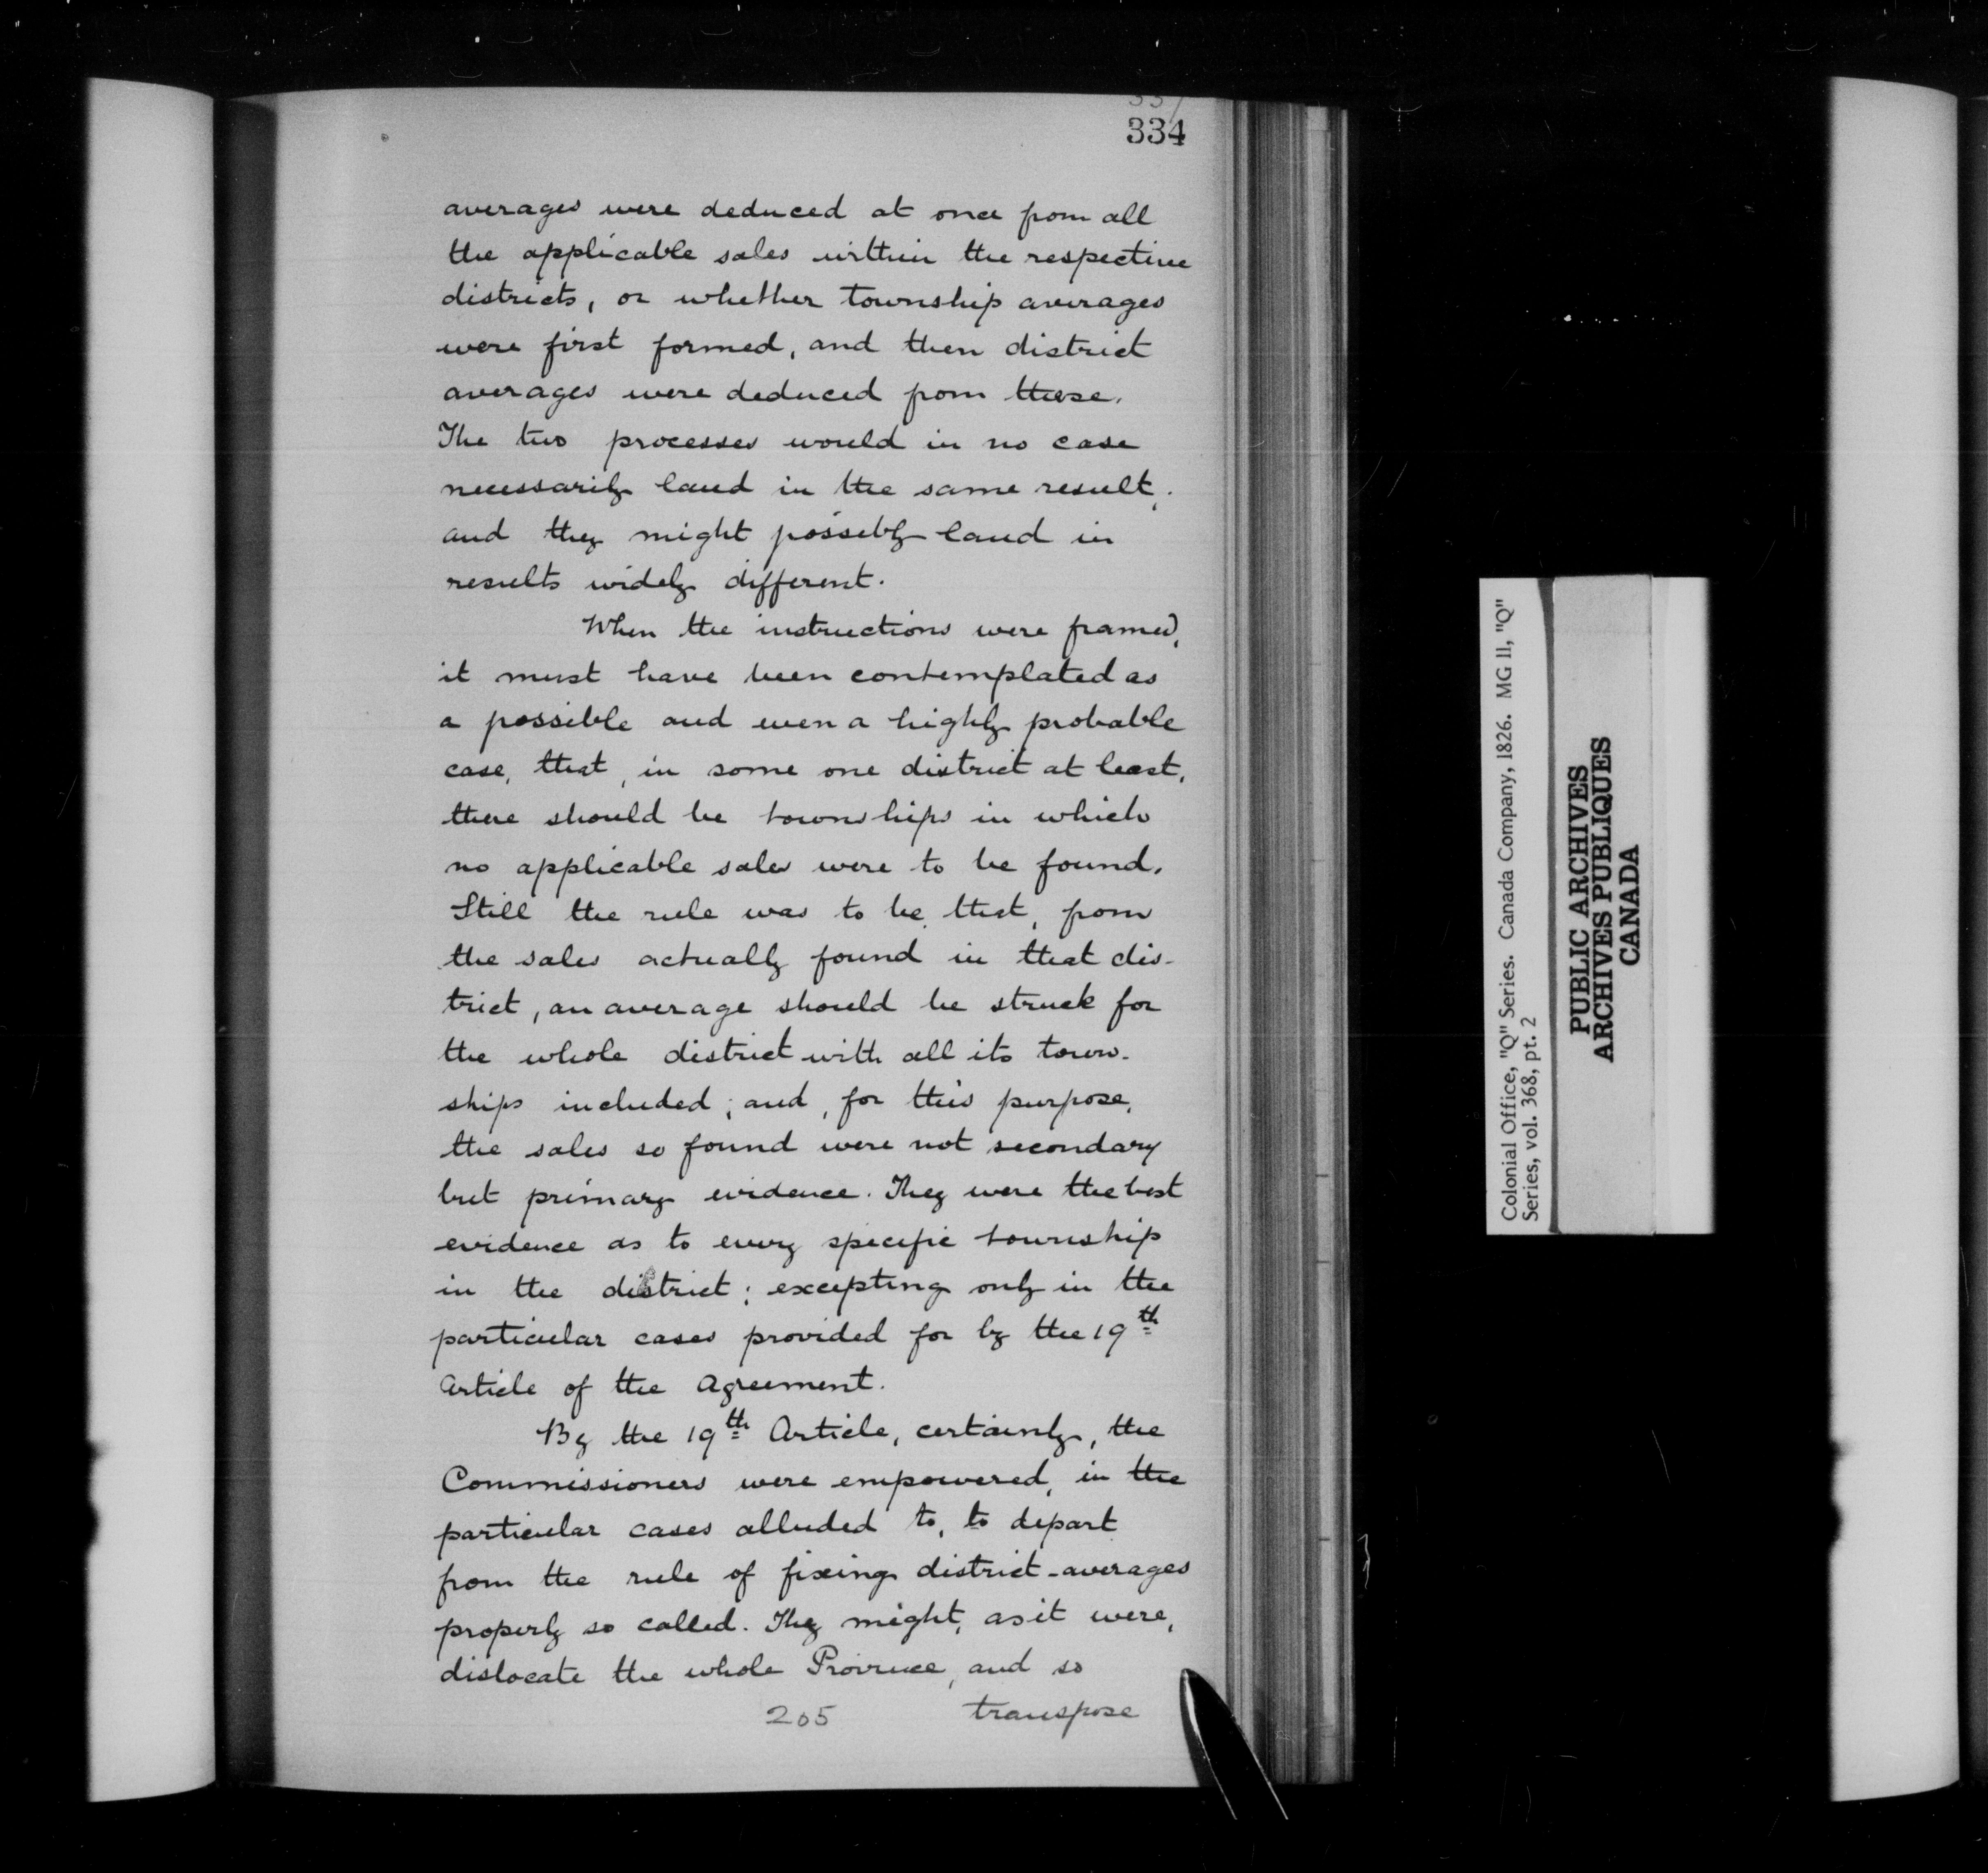 334
averages were deduced at once from all
the applicable sales within the respective
districts, or whether township averages
were first formed, and then district
averages were deduced from those.
The two processes would in no case
necessarily land in the same result;
and they might possibly land in
results widely different.
When the instructions were framed,
it must have been contemplated as
a possible and even a highly probable
case, that, in some one district at least,
there should be townships in which
no applicable sales were to be found.
Still the rule was to be, that, from
the sales actually found in that dis-
trict, an average should be struck for
the whole district with all its town-
ships included; and, for this purpose,
the sales so found were not secondary
but primary evidence. They were the best
evidence as to every specific township
in the district; excepting only in the
particular cases provided for by the 19th
Article of the Agreement.
By the 19th Article, certainly, the
Commissioners were empowered, in the
particular cases alluded to, to depart
from the rule of fixing district-averages
properly so called. They might, as it were,
dislocate the whole Province, and so
205 transpose
Colonial Office, "Q" Series. Canada Company, 1826. MG 11, "Q"
Series, vol. 368, pt. 2
PUBLIC ARCHIVES
ARCHIVES PUBLIQUES
CANADA